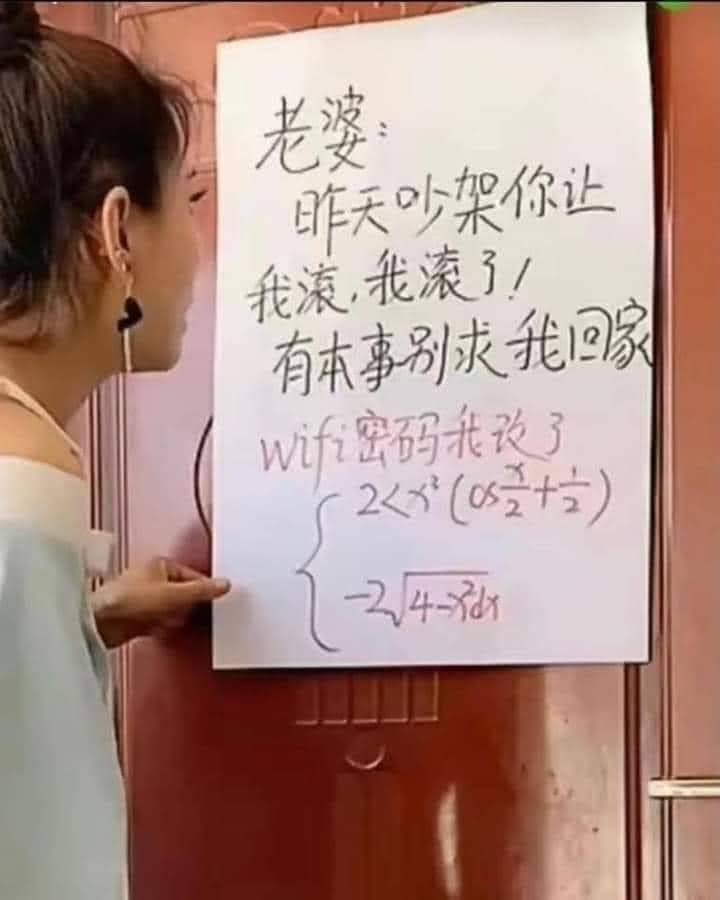 老婆:
昨天吵架你让
我滚,我滚了!
有本事别求我回家
wifi密码我改了
2<x³(os x/2+1/2)
-2√4-x²dx